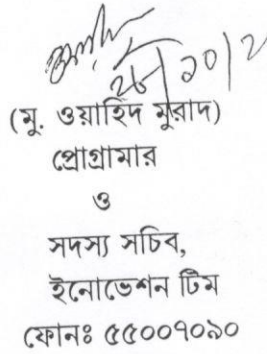 (মু. ওয়াহিদ মুরাদ)
প্রোগ্রামার
ও
সদস্য সচিব,
ইনোভেশন টিম
ফোনঃ ৫৫০০৭০৯০